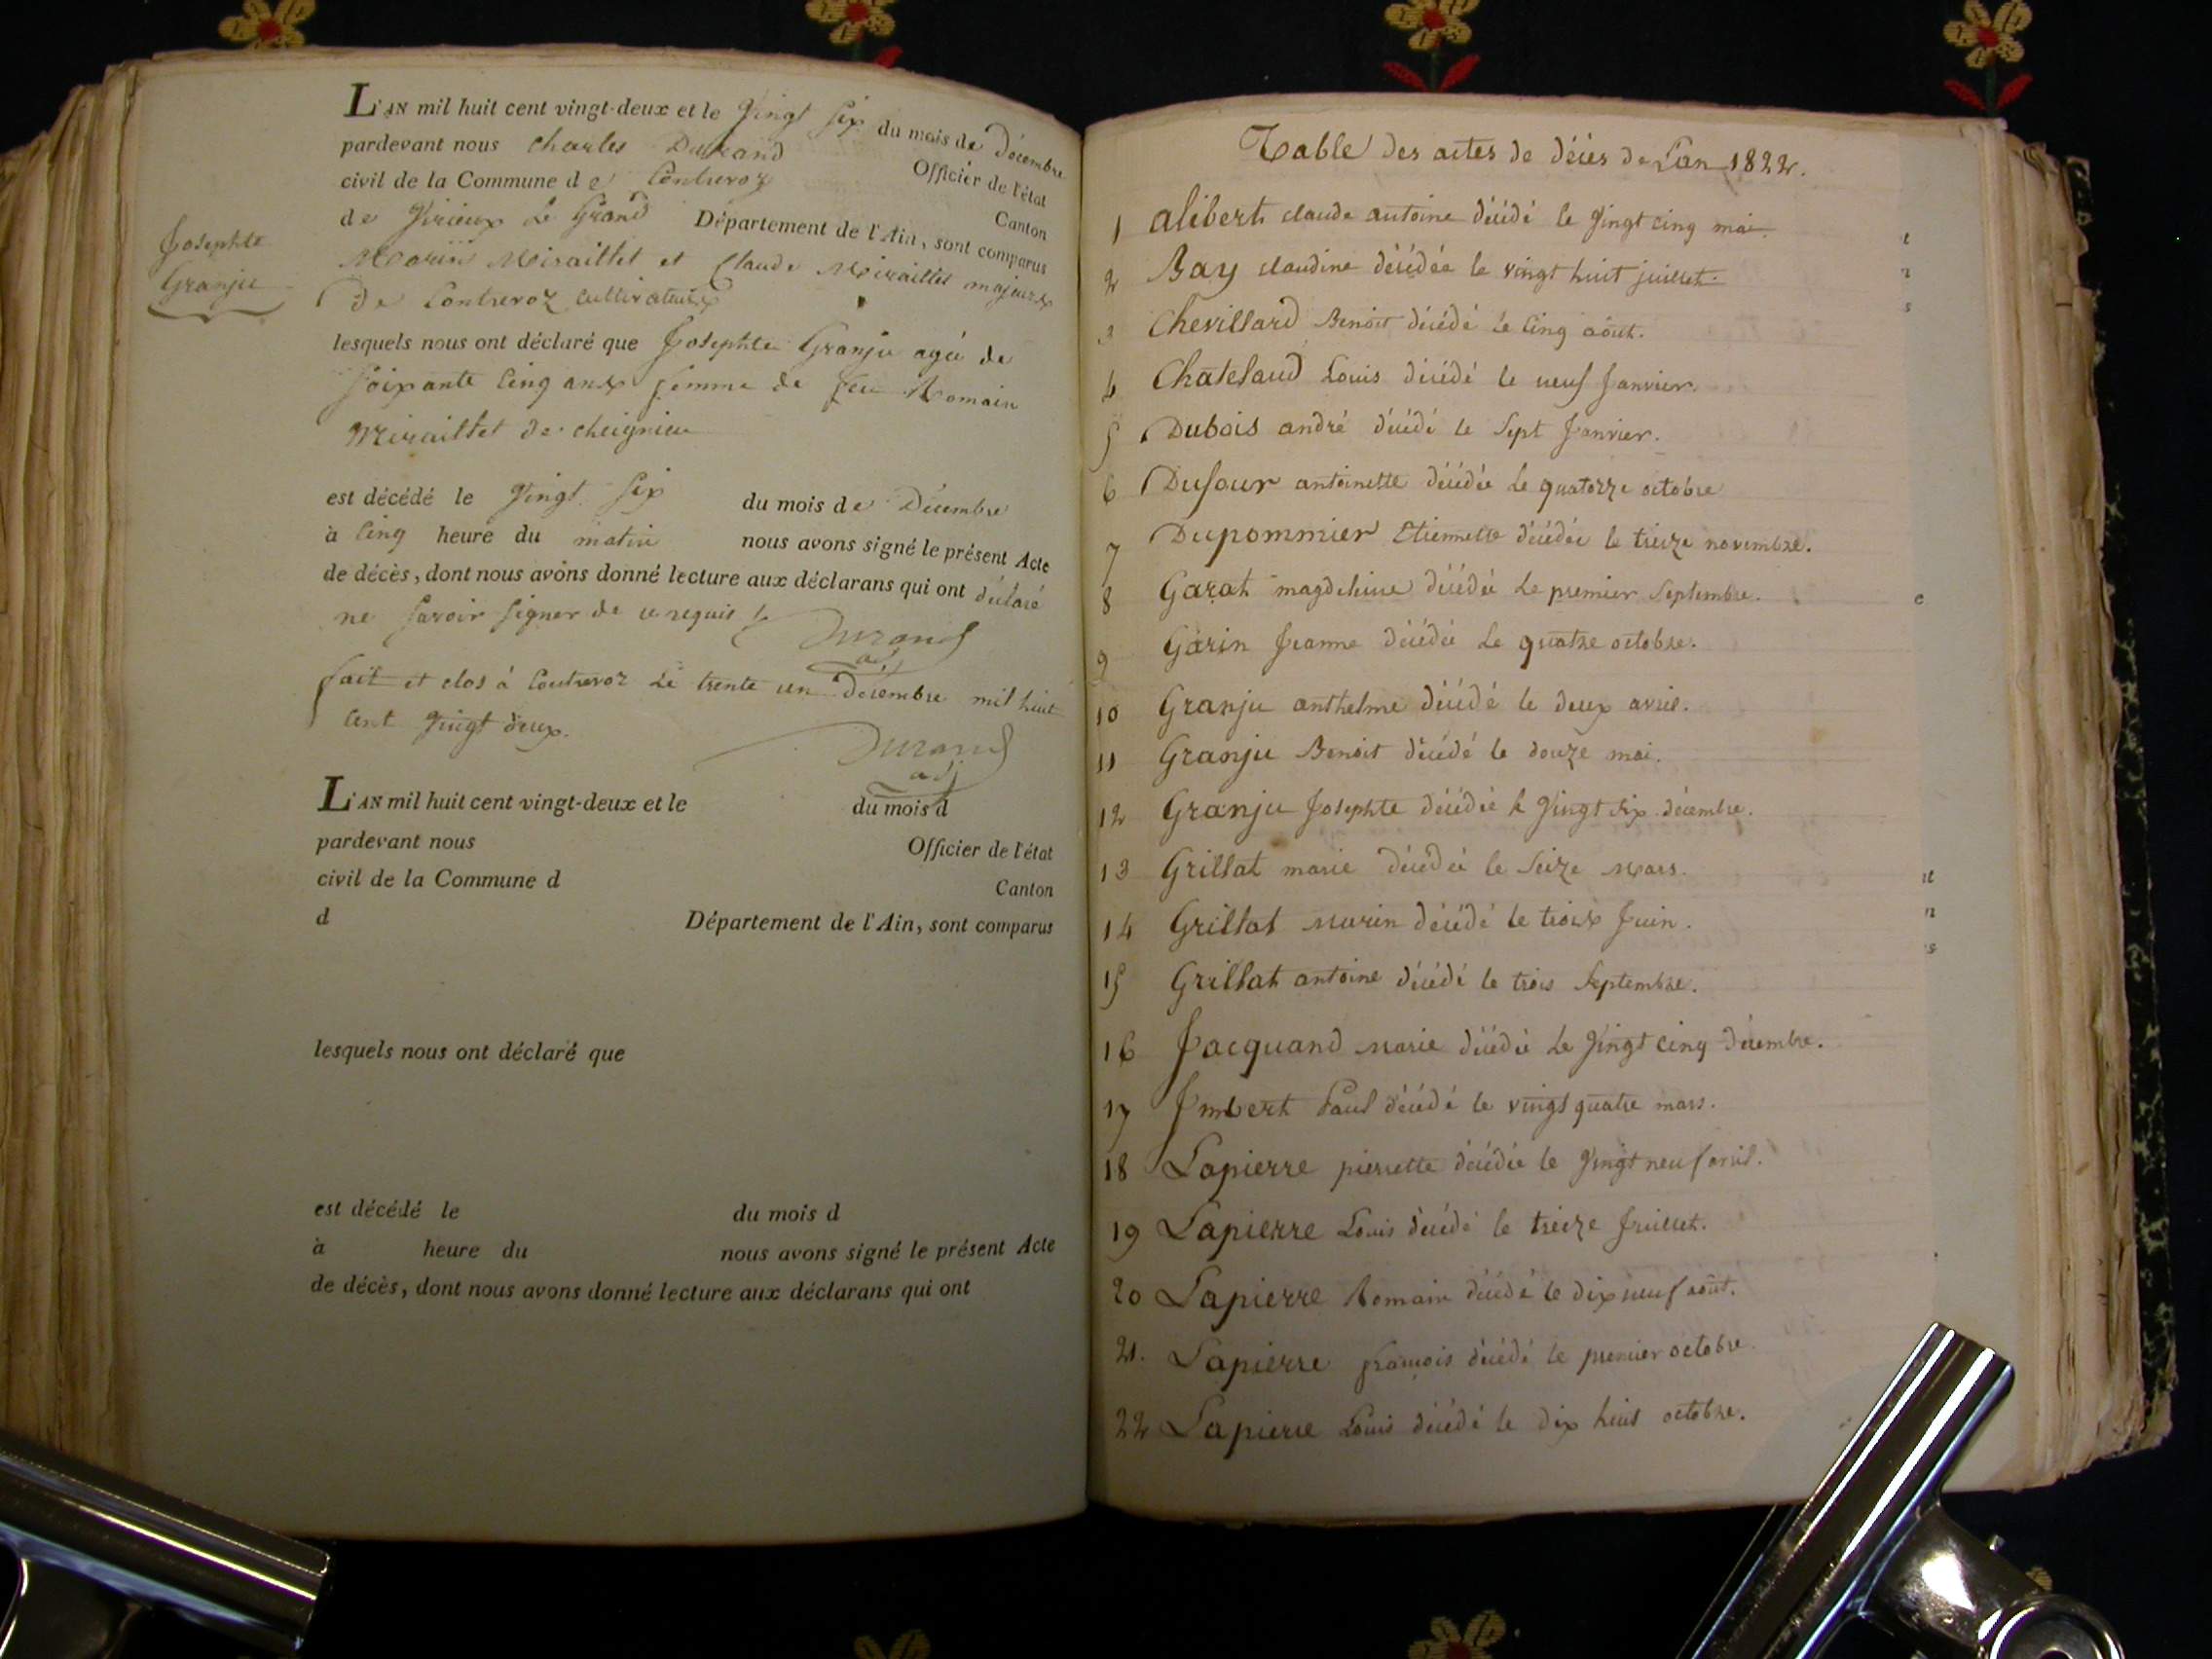 Josephte
Granju
L'AN mil huit cent vingt-deux et le Vingt Six du mois de Décembre
pardevant nous Charles Durand Officier de l'état
civil de la Commune de Contrevoz Canton
de Virieux Le Grand Département de l'Ain, sont comparus
Marin Miraillet et Claude Miraillet majeurs
de Contrevoz cultivateurs
lesquels nous ont déclaré que Josephte Granju agée de
soixante cinq ans femme de feu Romain
Miraillet de cheignieu
est décédé le Vingt Six du mois de Décembre
à cinq heure du matin nous avons signé le présent Acte
de décès, dont nous avons donné lecture aux déclarans qui ont déclaré
ne savoir signer de ce requis
Durand
adj
fait et clos à Contrevoz Le trente un décembre mil huit
cent vingt deux.
Durand
adj
L'AN mil huit cent vingt-deux et le du mois d
pardevant nous Officier de l'état
civil de la Commune d Canton
d Département de l'Ain, sont comparus
lesquels nous ont déclaré que
est décédé le du mois d
à heure du nous avons signé le présent Acte
de décès, dont nous avons donné lecture aux déclarans qui ont
Table des actes de décès de L'an 1822.
1 alibert claude antoine décédé le Vingt cinq mai.
2 Bay claudine décédée le vingt huit juillet.
3 Chevillard Benoit décédé le cinq août.
4 Chatelaud Louis décédé le neuf Janvier.
5 Dubois andré décédé le Sept Janvier.
6 Dufour antoinette décédée Le quatorze octobre
7 Dupommier Etiennette décédée le treize novembre.
8 Garat magdeleine décédée Le premier Septembre.
9 Garin Jeanne décédée Le quatre octobre.
10 Granju anthelme décédé le deux avril.
11 Granju Benoit décédé le douze mai.
12 Granju Josephte décédée le Vingt Six décembre.
13 Grillat marie décédée le Seize Mars.
14 Grillat Marin décédé le trois Juin.
15 Grillat antoine décédé le trois Septembre.
16 Jacquand Marie décédée Le Vingt cinq Décembre.
17 Jmbert Paul décédé le vingt quatre mars.
18 Lapierre pierrette décédée le Vingt neuf avril.
19 Lapierre Louis décédé le treize Juillet.
20 Lapierre Romain décédé le dix neuf août.
21. Lapierre françois décédé le premier octobre.
22 Lapierre Louis décédé le dix huit octobre.